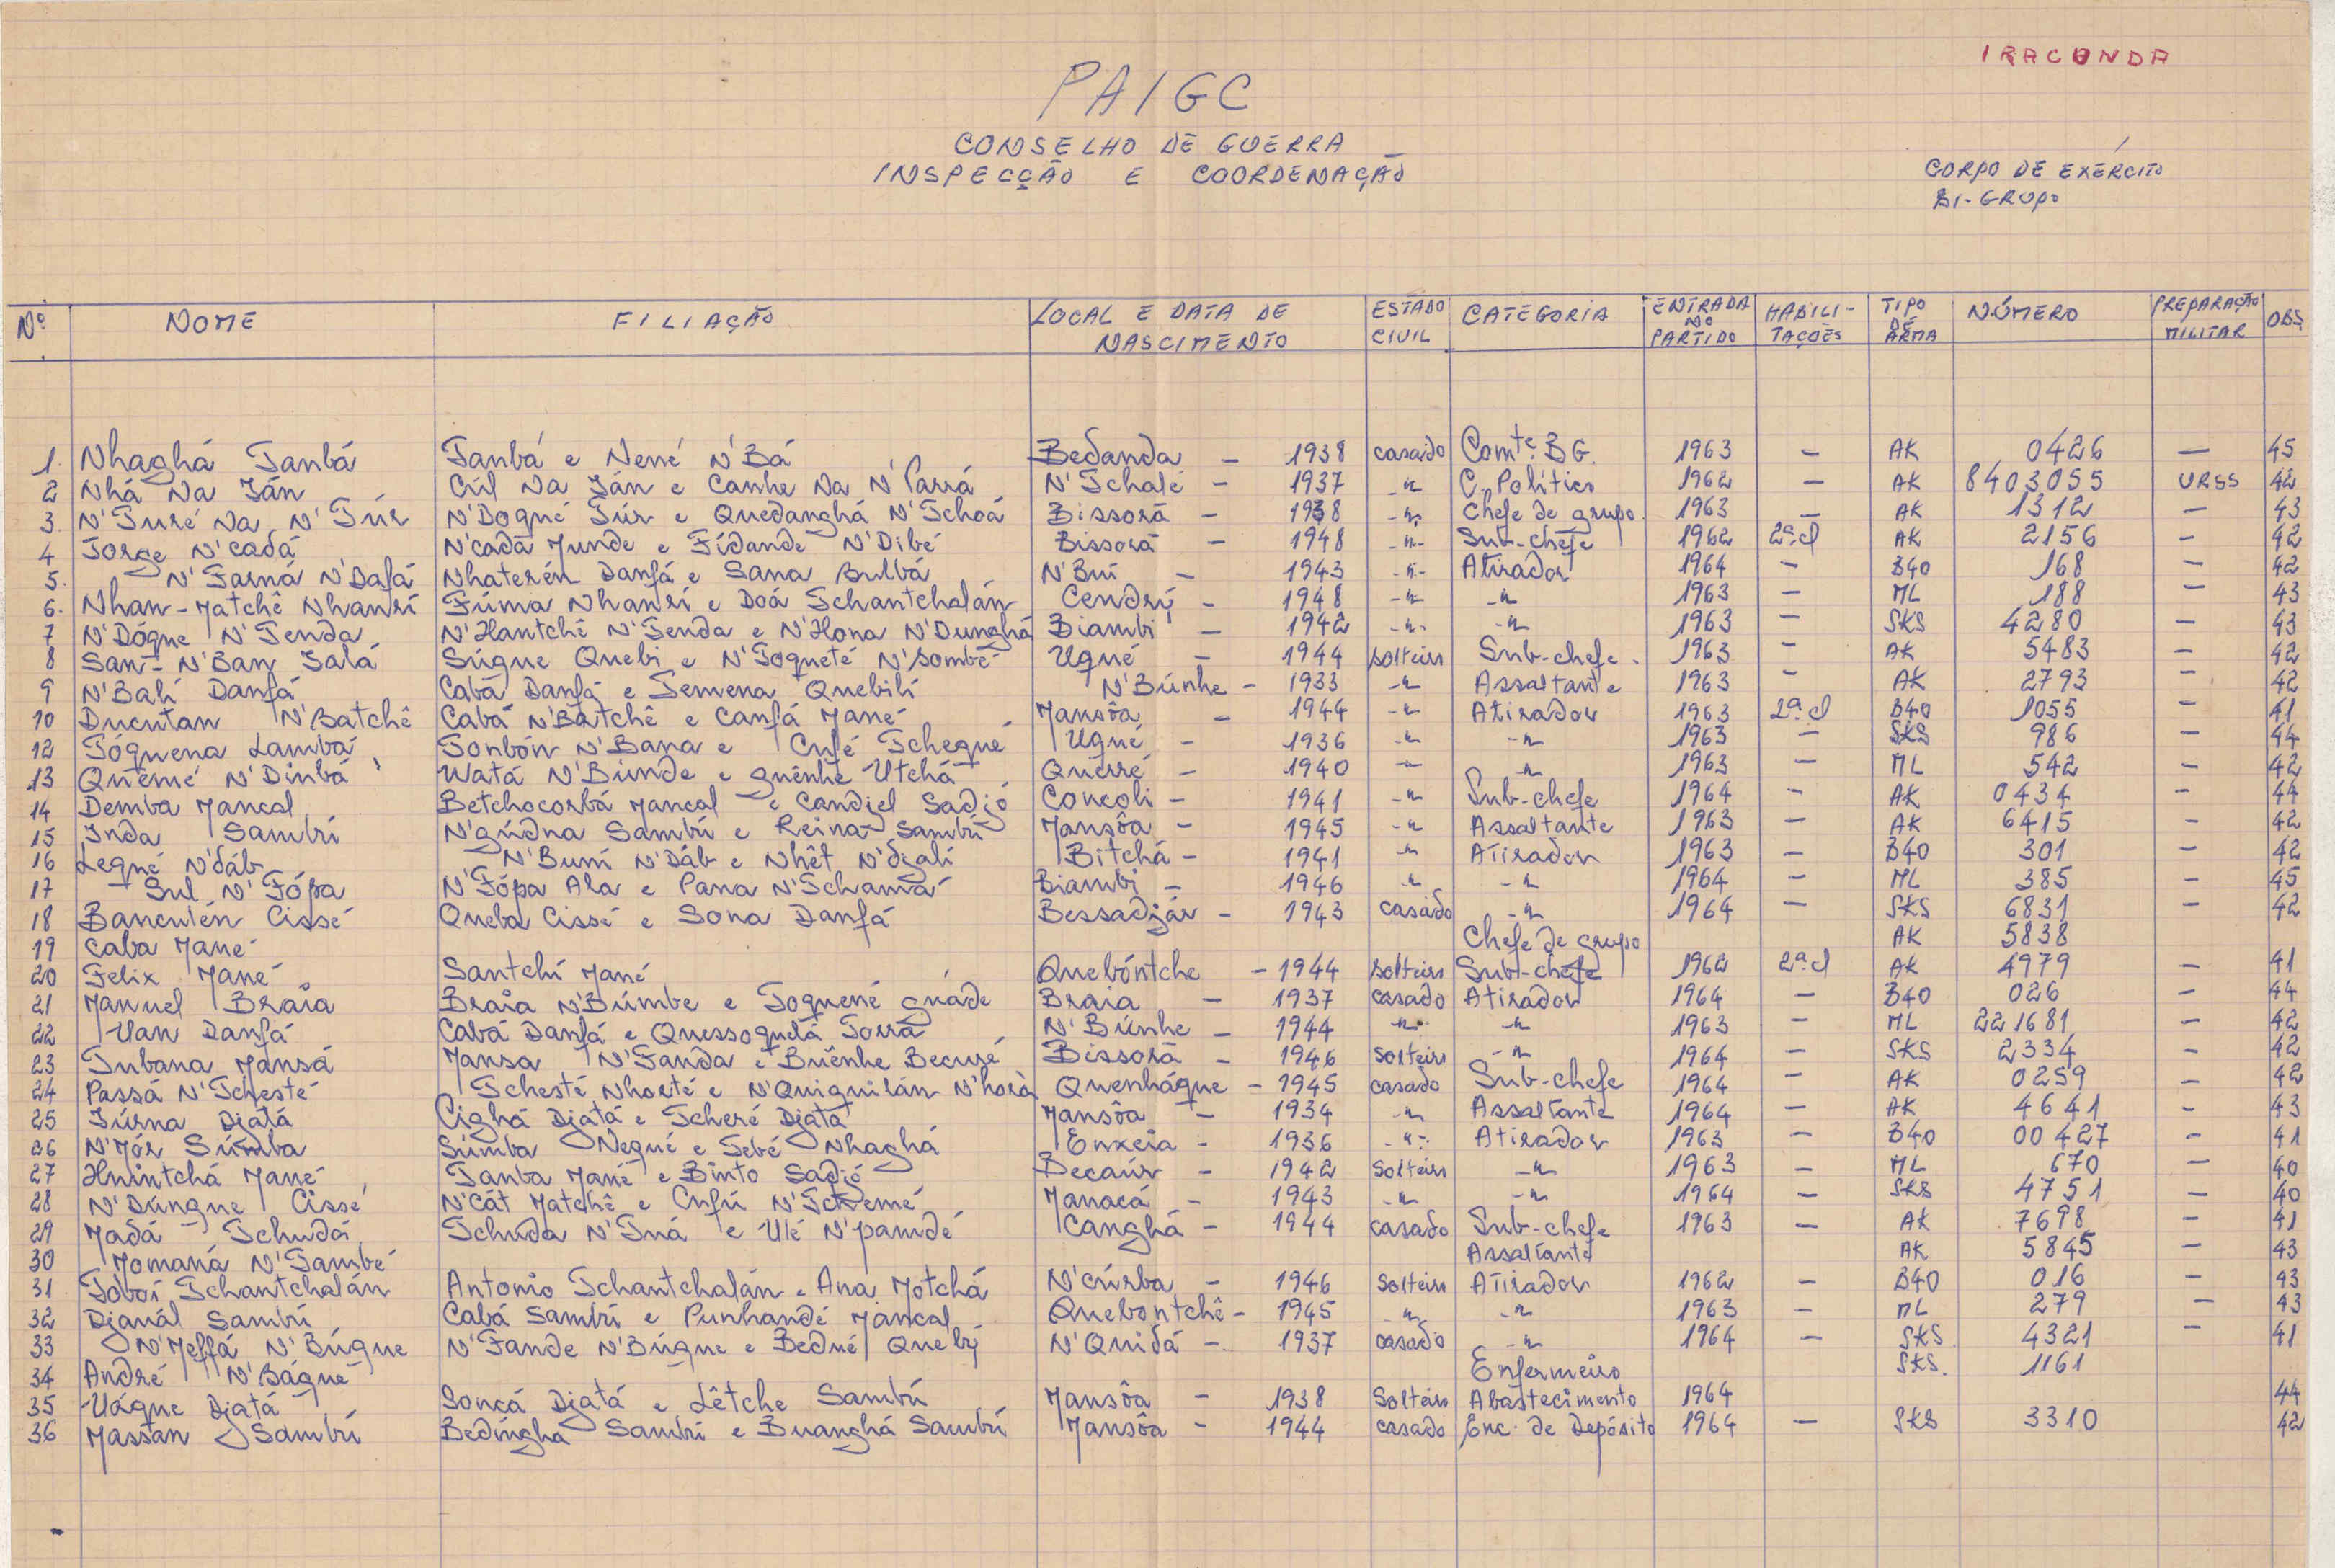 IRACUNDA
PAIGC
CONSELHO DE GUERRA
INSPECÇÃO E COORDENAÇÃO
CORPO DE EXÉRCITO
BI-GRUPO
Nº NOME FILIAÇÃO LOCAL E DATA DE NASCIMENTO ESTADO CIVIL CATEGORIA ENTRADA NO PARTIDO HABILI-TAÇÕES TIPO DE ARMA NÚMERO PREPARAÇÃO MILITAR OBS.
1. Nhaghá Tanbá Tanbá e Nené N'Bá Bedanda - 1938 casado Comte. B G. 1963 - AK 0426 - 45
2 Nhá Na Ján Cúl Na Ján e Canhe Na N'Parrá N'Tchalé - 1937 -"- C. Político 1962 - AK 8403055 URSS 42
3. N'Turé Na N'Túr N'Dogné Túr e Quedanghá N'Tchoá Bissorã - 1938 -"- Chefe de grupo. 1963 - AK 1312 - 43
4 Jorge N'cadá N'cadá Munde e Fídande N'Dibé Bissorã - 1948 -"- Sub-chefe 1962 2ª cl AK 2156 - 42
5. N'Farná N'Dafá Nhaterén Danfá e Sana Bulbá N'Buí - 1943 -"- Atirador 1964 - B40 168 - 42
6. Nhan-Matchê Nhanrí Fúma Nhanrí e Doá Tchantchalán Cendrý - 1948 -"- -"- 1963 - ML 188 - 43
7 N'Dógne N'Tenda N'Hantchê N'Tenda e N'Hona N'Dunghá Biambi - 1942 -"- -"- 1963 - SKS 4280 - 43
8 Saní-N'Ban Jalá Súgue Quebi e N'Toqueté N'Sombé Uqué - 1944 solteiro Sub-chefe. 1963 - AK 5483 - 42
9 N'Balí Danfá Cabá Danfá e Temena Quebilí N'Búnhe - 1933 -"- Assaltante 1963 - AK 2793 - 42
10 Ducutan N'Batchê Cabá N'Batchê e Canfá Mané Mansôa - 1944 -"- Atirador 1963 2ª cl B40 1055 - 41
12 Tóquena Lambá Tonbón N'Bana e Cufé Tchegué Uqué - 1936 -"- -"- 1963 - SKS 986 - 44
13 Quêmé N'Dinbá Watá N'Búnde e guênhê Utchá Querré - 1940 -"- -"- 1963 - ML 542 - 42
14 Demba Mancal Betchocorbá Mancal e Candiel Sadjó Concoli - 1941 -"- Sub-chefe 1964 - AK 0434 - 44
15 Inda Sambú N'gúdna Sambú e Reina Sambú Mansôa - 1945 -"- Assaltante 1963 - AK 6415 - 42
16 Legné N'dáb N'Buní N'Dáb e Nhêt N'djalí Bitchá - 1941 -"- Atirador 1963 - B40 301 - 42
17 Sul N'Fópa N'Fópa Ala e Pana N'Tchamá Biambi - 1946 -"- -"- 1964 - ML 385 - 45
18 Bancutén Cissé Queba Cissé e Sona Danfá Bessadjár - 1943 casado -"- 1964 - SKS 6831 - 42
19 Caba Mané Chefe de grupo AK 5838
20 Felix Mané Santchí Mané Quebóntche - 1944 solteiro Sub-chefe 1962 2ª cl AK 4979 - 41
21 Manuel Braia Braia N'Búmbe e Toguené guáde Braia - 1937 casado Atirador 1964 - B40 026 - 44
22 Uan Danfá Cabá Danfá e Quessoquelá Torrá N'Búnhe - 1944 -"- -"- 1963 - ML 221681 - 42
23 Tubana Mansá Mansa N'Fanda e Buênhe Becuré Bissorã - 1946 solteiro -"- 1964 - SKS 2334 - 42
24 Passá N'Tchesté Tchesté Nhorté e N'Quiquilán N'horá Quenháque - 1945 casado Sub-chefe 1964 - AK 0259 - 42
25 Júrna Djatá Cighá Djatá e Tcheré Djatá Mansôa - 1934 -"- Assaltante 1964 - AK 4641 - 43
26 N'Mór Súmba Súmba Negué e Sebé Nhaghá Enxeia - 1936 -"- Atirador 1963 - B40 00427 - 41
27 Hnintchá Mané Tanba Mané e Binto Sadjó Becaúr - 1942 solteiro -"- 1963 - ML 670 - 40
28 N'Dúngue Cissé N'Cát Matchê e Cufú N'Tcremé Manacá - 1943 -"- -"- 1964 - SKS 4751 - 40
29 Madá Tchudá Tchuda N'Tná e Ulé N'pamdé Canghá - 1944 casado Sub-chefe 1963 - AK 7698 - 41
30 Momaná N'També Assaltante AK 5845 - 43
31 Toboi Tchantchalán Antonio Tchantchalán e Ana Motchá N'cúrba - 1946 solteiro Atirador 1962 - B40 016 - 43
32 Djanál Sambú Cabá Sambú e Punhandé Mancal Quebontchê - 1945 -"- -"- 1963 - ML 279 - 43
33 N'Meffá N'Búgue N'Fande N'Búgue e Bedné Queby N'Quidá - 1937 casado -"- 1964 - SKS 4321 - 41
34 André N'Bágné Enfermeiro SKS. 1161
35 Uáque Djatá Soncá Djatá e Lêtche Sambú Mansôa - 1938 solteiro Abastecimento 1964 44
36 Massan Sambú Bedíngha Sambú e Buanghá Sambú Mansôa - 1944 casado Enc. de Depósito 1964 - SKS 3310 42